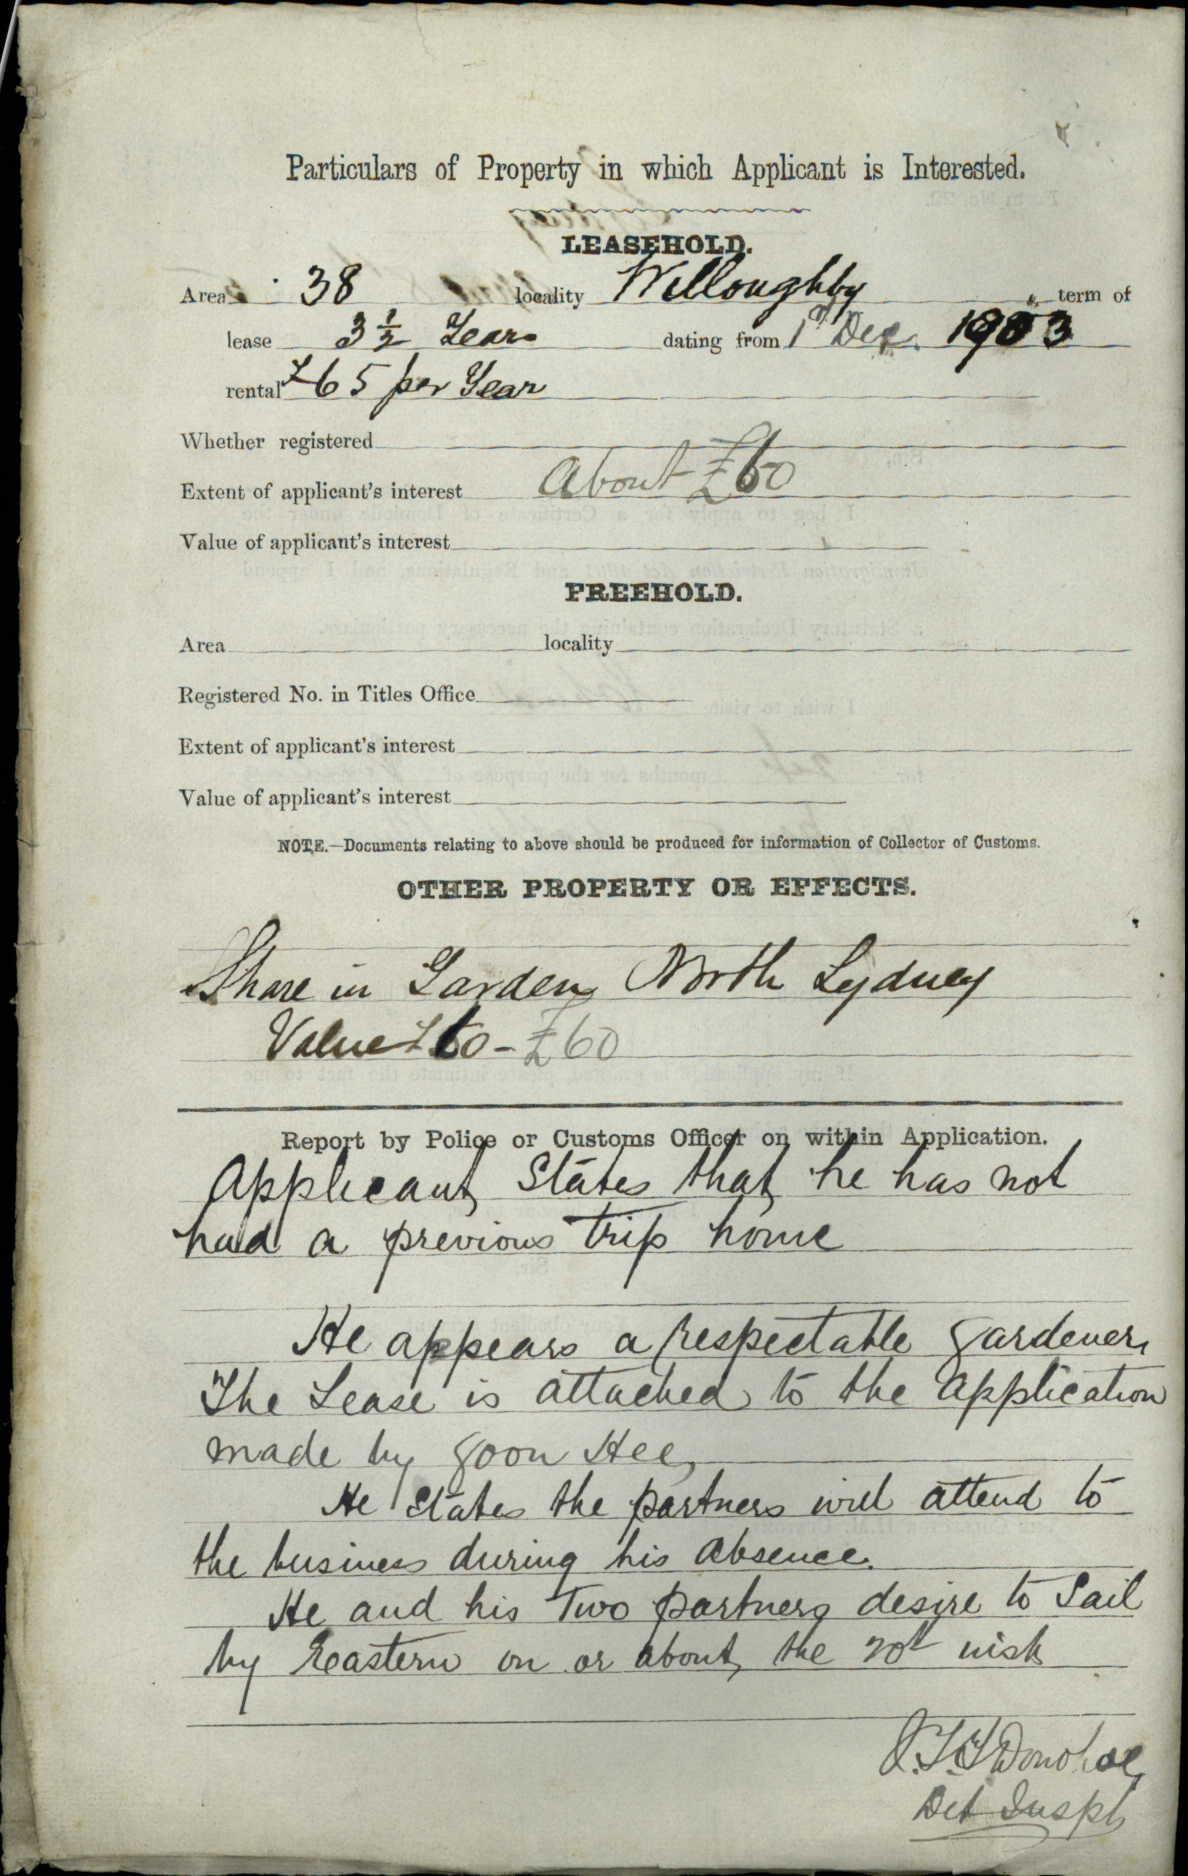 Particulars of Property in which Applicant is Interested.
LEASEHOLD.
Area 38 locality Willoughby term of
lease 3 1/2 Years dating from 1st Dec. 1903
rental £65 per Year
Whether registered
Extent of applicant's interest About £60
Value of applicant's interest
FREEHOLD.
Area locality
Registered No. in Titles Office
Extent of applicant's interest
Value of applicant's interest
NOTE.—Documents relating to above should be produced for information of Collector of Customs.
OTHER PROPERTY OR EFFECTS.
Share in Garden North Sydney
Value £60 - £60
Report by Police or Customs Officer on within Application.
Applicant States that he has not
had a previous trip home
He appears a respectable gardener,
The Lease is attached to the Application
made by Goon Hee,
He States the partners will attend to
the business during his Absence.
He and his Two partners desire to Sail
by Eastern on or about the 20th inst
Donohoe
Det Inspt